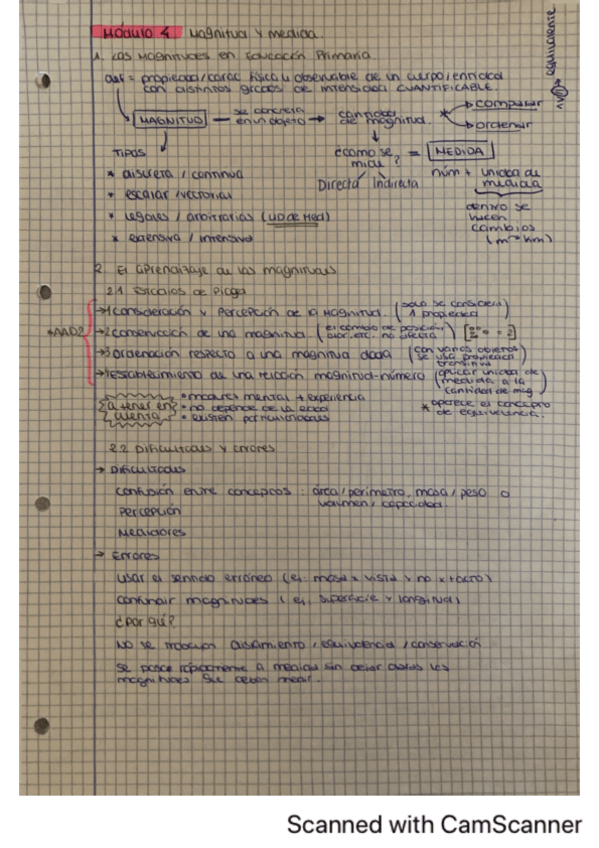 MÓDULO 4 Magnitud y medida.
1. Las magnitudes en Educación Primaria
def = propiedad/carac física u observable de un cuerpo/entidad
con distintos grados de intensidad CUANTIFICABLE.
equivalente
MAGNITUD → se concreta en un objeto → cantidad de magnitud. * comparar
ordenar
TIPOS
¿cómo se mide? = MEDIDA
* discreta / continua
Directa Indirecta
núm + unidad de medida
* escalar / vectorial
* legales / arbitrarias (UD DE MED)
dentro se hacen cambios (m → km)
* extensiva / intensiva
2. El aprendizaje de las magnitudes
2.1 Estadios de Piaget
*AAD2
→1 consideración y percepción de la magnitud. (solo se considera 1 propiedad)
→2 conservación de una magnitud (el cambio de posición, etc. no afecta)
→3 ordenación respecto a una magnitud dada (con varios objetos se usa propiedad transitiva)
→4 establecimiento de una relación magnitud-número (aplicar unidad de medida a la cantidad de mag)
* aparece el concepto de equivalencia.
a tener en cuenta
• madurez mental + experiencia
• no depende de la edad
• existen particularidades
2.2 Dificultades y errores
→ Dificultades
confusión entre conceptos : área/perímetro, masa/peso o
volumen/capacidad.
Percepción
Mediadores
→ Errores
usar el sentido erróneo (ej. masa x vista y no x tacto)
confundir magnitudes (ej. superficie y longitud)
¿por qué?
NO se trabajan aislamiento / equivalencia / conservación
se pasa rápidamente a medidas sin dejar claras las
magnitudes que deben medir.
Scanned with CamScanner